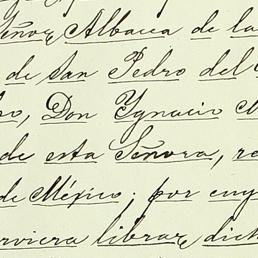 Señor Albacea de la
de San Pedro del
Don Ygnacio
de esta Señora, re
de México; por cuy
rviera librar dich